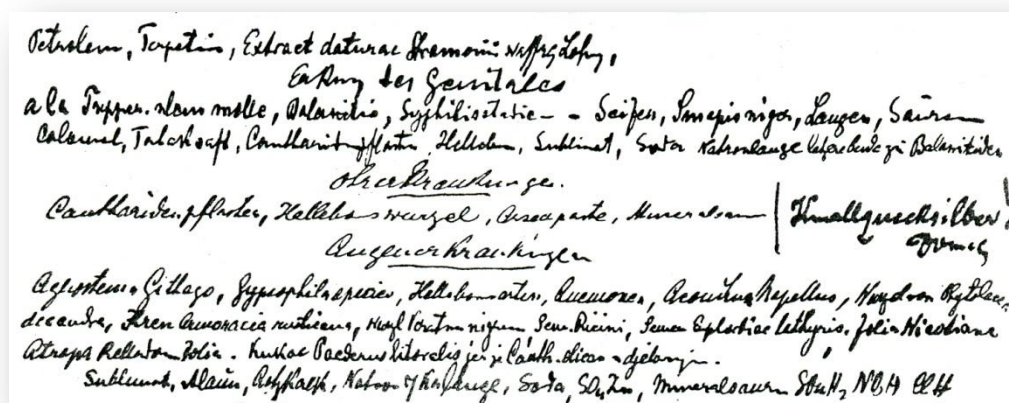 Petroleum, Terpetin, Extract daturae Stramonii
Erkrkg des Genitales
a la Tripper. ulcus molle, Balanitis, Syphilisstadie - - Seifen, Sinapis niger, Laugen, Säuren
Calomel, Tabaksaft, Cantharidenpflaster, Hellebor, Sublimat, Soda Natronlauge letzere beide zu Balanitiden
Ohrerkrankungen.
Cantharidenpflaster, Helleboruswurzel, Arsenpaste, Mineralsäuren | Knallquecksilber!
Augenerkrankungen
Agrostema Githago, Gypsophila species, Helleborusarten, Anemonen, Aconitum Napellus, Phytolacca
decandra, Kren Armoracia rusticana, nigrum Sem. Ricini, Semen Euphorbiae lathyris, Folia Nicotiana
Atropa Belladon Folia. Paederus litoralis jer je Canth. dicao - djelovanje.
Sublimat, Alaun, Aetzkalk, Natron Kalilauge, Soda, SO₄Zn, Mineralsäuren SO₄H₂ NO₃H ClH